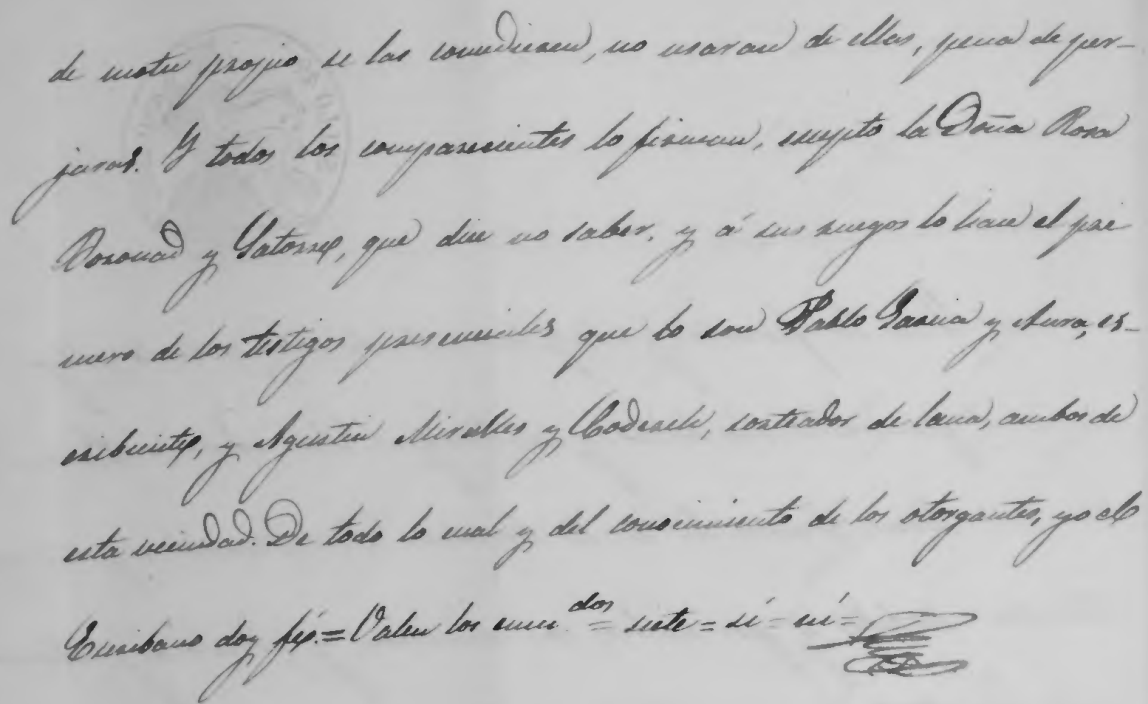 de motu propio se las concediesen, no usaran de ellas, pena de per-
juras. Y todos los comparecientes lo firman, escepto la Doña Rosa
y Satorre, que dice no saber, y á sus ruegos lo hace el pri
mero de los testigos presenciales que lo son Pablo Garcia y Aura, es-
cribiente, y Agustin Miralles y Coderch, sorteador de lana, ambos de
esta vecindad. De todo lo cual y del conocimiento de los otorgantes, yo el
Escribano doy fé. = Valen los enmdos = siete = si = ni =